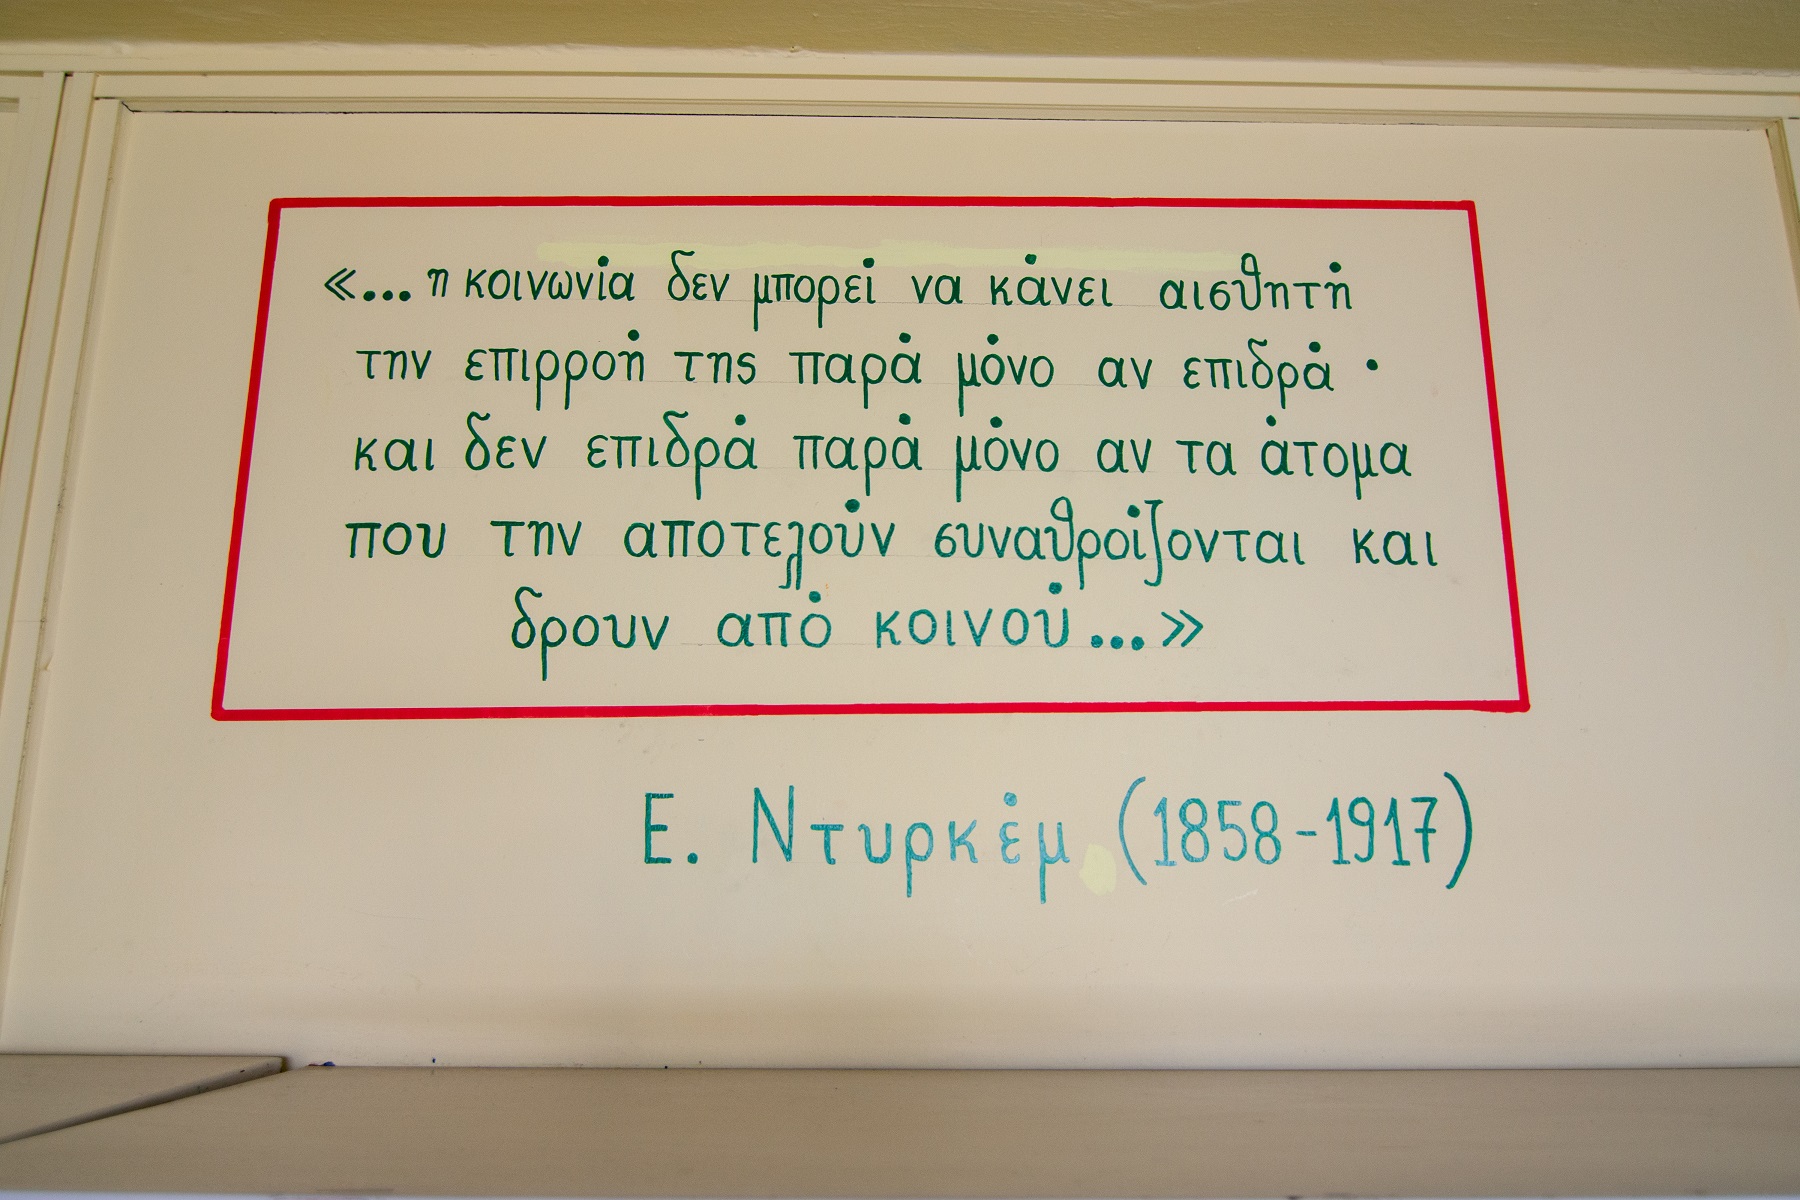 «... η κοινωνία δεν μπορεί να κάνει αισθητή
την επιρροή της παρά μόνο αν επιδρά ·
και δεν επιδρά παρά μόνο αν τα άτομα
που την αποτελούν συναθροίζονται και
δρουν από κοινού ... »
Ε. Ντυρκέμ (1858-1917)